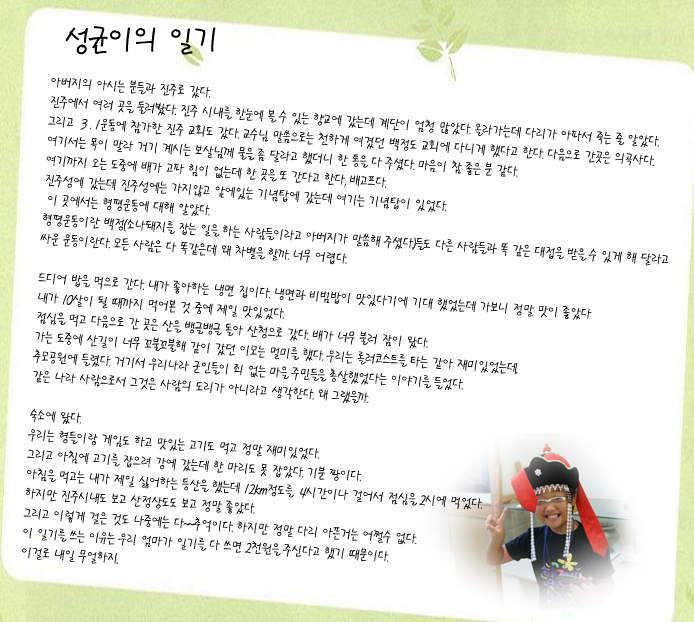 성균이의 일기
아버지의 아시는 분들과 진주로 갔다.
진주에서 여러 곳을 둘러봤다. 진주 시내를 한눈에 볼 수 있는 향교에 갔는데 계단이 엄청 많았다. 올라가는데 다리가 아파서 죽는 줄 알았다.
그리고 3. 1운동에 참가한 진주 교회도 갔다. 교수님 말씀으로는 천하게 여겼던 백정도 교회에 다니게 했다고 한다. 다음으로 간곳은 의곡사다.
여기서는 목이 말라 거기 계시는 보살님께 물을 좀 달라고 했더니 한 통을 다 주셨다. 마음이 참 좋은 분 같다.
여기까지 오는 도중에 배가 고파 힘이 없는데 한 곳을 또 간다고 한다, 배고프다.
진주성에 갔는데 진주성에는 가지않고 앞에있는 기념탑에 갔는데 여기는 기념탑이 있었다.
이 곳에서는 형평운동에 대해 알았다.
형평운동이란 백정(소나돼지를 잡는 일을 하는 사람들이라고 아버지가 말씀해 주셨다)들도 다른 사람들과 똑 같은 대접을 받을 수 있게 해 달라고
싸운 운동이란다. 모든 사람은 다 똑같은데 왜 차별을 할까. 너무 어렵다.
드디어 밥을 먹으로 간다. 내가 좋아하는 냉면 집이다. 냉면과 비빔밥이 맛있다기에 기대 했었는데 가보니 정말 맛이 좋았다
내가 10살이 될 때까지 먹어본 것 중에 제일 맛있었다.
점심을 먹고 다음으로 간 곳은 산을 뱅글뱅글 돌아 산청으로 갔다. 배가 너무 불러 잠이 왔다.
가는 도중에 산길이 너무 꼬불꼬불해 같이 갔던 이모는 멀미를 했다. 우리는 롤러코스트를 타는 같아 재미있었는데
추모공원에 들렸다. 거기서 우리나라 군인들이 죄 없는 마을 주민들을 총살했었다는 이야기를 들었다.
같은 나라 사람으로서 그것은 사람의 도리가 아니라고 생각한다. 왜 그랬을까.
숙소에 왔다.
우리는 형들이랑 게임도 하고 맛있는 고기도 먹고 정말 재미있었다.
그리고 아침에 고기를 잡으려 강에 갔는데 한 마리도 못 잡았다. 기분 짱이다.
아침을 먹고는 내가 제일 싫어하는 등산을 했는데 12km정도를 4시간이나 걸어서 점심을 2시에 먹었다.
하지만 진주시내도 보고 산정상도도 보고 정말 좋았다.
그리고 이렇게 걸은 것도 나중에는 다~~추억이다. 하지만 정말 다리 아픈거는 어쩔수 없다.
이 일기를 쓰는 이유는 우리 엄마가 일기를 다 쓰면 2천원을 주신다고 했기 때문이다.
이걸로 내일 무얼하지.